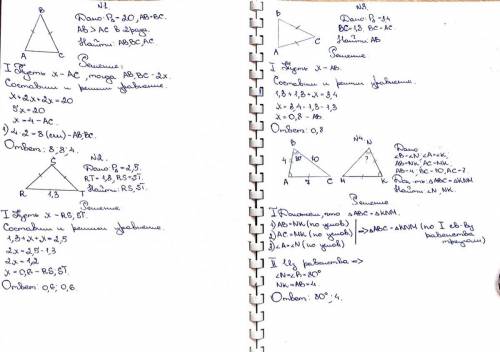 №1.
B
A
C
Дано: P₂=20, AB=BC.
AB > AC в 2 раза.
Найти: AB, BC, AC.
Решение:
I Пусть x - AC, тогда AB, BC - 2x.
Составим и решим уравнение.
x+2x+2x=20
5x=20
x=4 - AC.
1) 4·2=8 (см) - AB, BC.
Ответ: 8; 8; 4.
№2.
C
R
1,3
T
Дано: P₂=2,5.
RT=1,3, RS=ST.
Найти: RS, ST.
Решение
I Пусть x - RS, ST.
Составим и решим уравнение.
1,3+x+x=2,5
2x=2,5-1,3
2x=1,2
x=0,6 - RS, ST.
Ответ: 0,6; 0,6
B
A
C
Дано: P₂=3,4
BC=1,3, BC=AC.
Найти: AB
Решение
I Пусть x - AB.
Составим и решим уравнение.
1,3+1,3+x=3,4
x=3,4-1,3-1,3
x=0,8 - AB.
Ответ: 0,8
№4.
B
4
10
A
7
C
N
?
K
Дано
AB=4, BC=10, AC=7
Док-ть: △ABC=△KNM.
Найти: ∠N, NK.
Решение
I Докажем, что △ABC=△KNM.
1) AB=NK (по услов)
2) AC=NK (по услов)
3) ∠A=∠N (по услов)
=> △ABC=△KNM (по I св-ву
равенства
треугол)
II Из равенства =>
∠N=∠B=80°
NK=AB=4.
Ответ: 80°; 4.